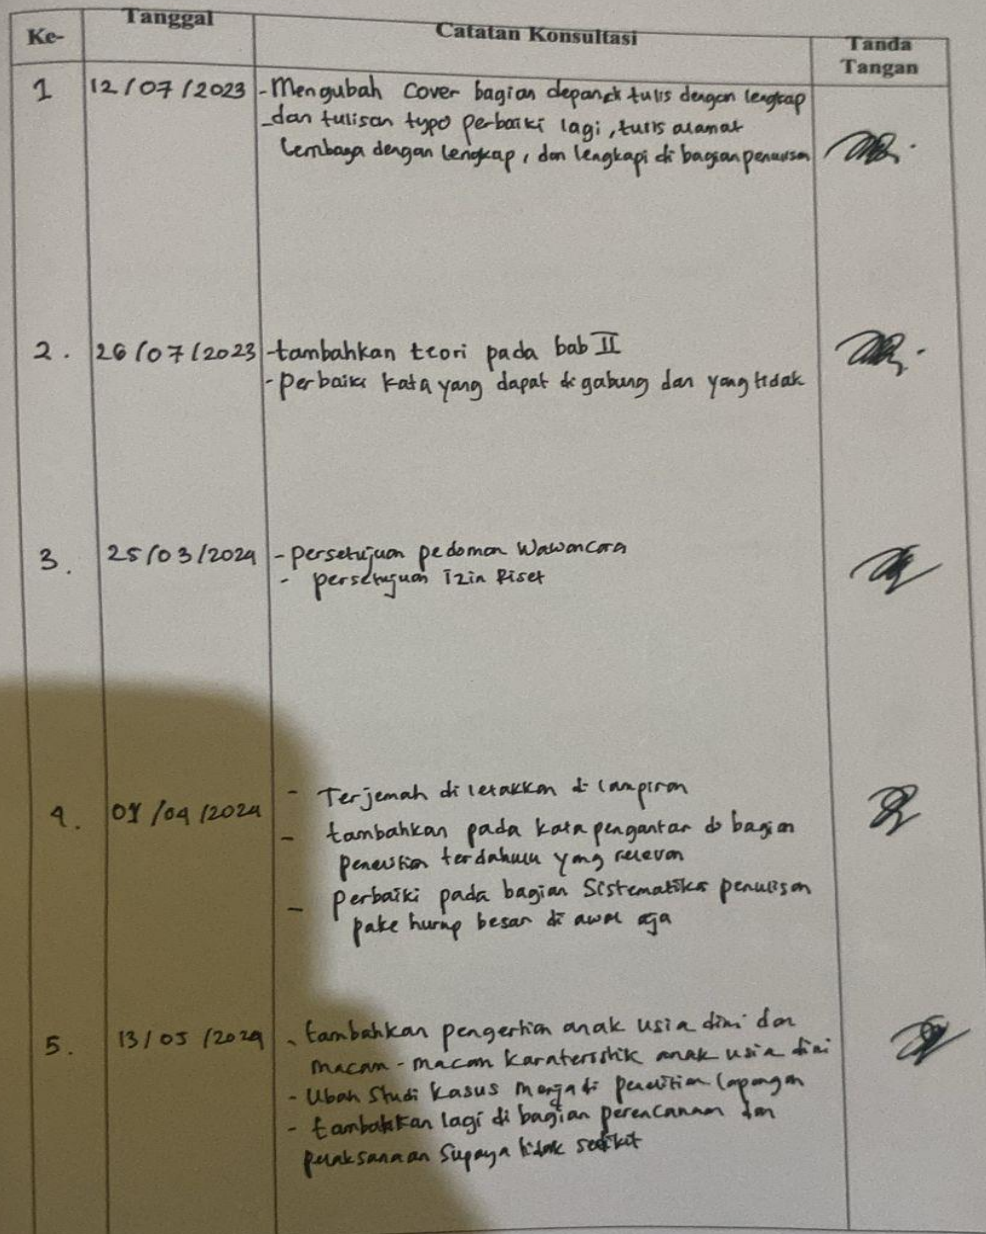 Ke-
Tanggal
Catatan Konsultasi
Tanda
Tangan
1
12/07/2023
- Mengubah cover bagian depan tulis dengan lengkap
- dan tulisan typo perbaiki lagi, tulis alamat
Lembaga dengan lengkap, dan lengkapi di bagian penulisan
2.
26/07/2023
- tambahkan teori pada bab II
- Perbaiki kata yang dapat di gabung dan yang tidak
3.
25/03/2024
- Persetujuan pedoman Wawancara
- persetujuan Izin Riset
4.
/04/2024
- Terjemah di letakkan di lampiran
- tambahkan pada kata pengantar di bagian
penelitian terdahulu yang relevan
- perbaiki pada bagian Sistematika penulisan
pake hurup besar di awal aja
5.
13/05/2024
- tambahkan pengertian anak usia dini dan
macam-macam karateristik anak usia dini
- Ubah Studi Kasus menjadi penelitian lapangan
- tambahkan lagi di bagian perencanaan dan
pelaksanaan supaya tidak sedikit